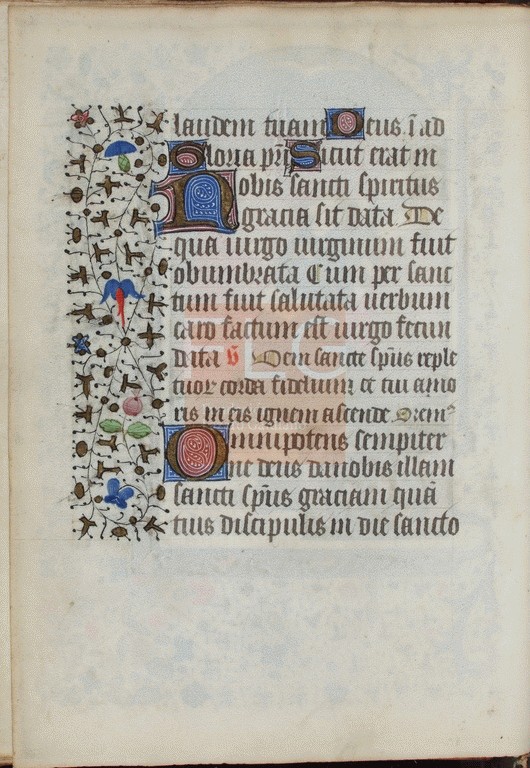 laudem tuam Deus ī ad
Gloria pr̄i Sicut erat in
Nobis sancti spiritus
gracia sit data De
qua uirgo uirginum fuit
obumbrata Cum per sanc
tum fuit salutata uerbum
caro factum est uirgo fecun
data v̄ Dem sancte sp̄us reple
tuor corda fidelium et tui amo
ris in eis ignem ascende Orem
Omnipotens sempiter
ne deus da nobis illam
sancti sp̄us graciam quā
tuis discipulis in die sancto
FLG